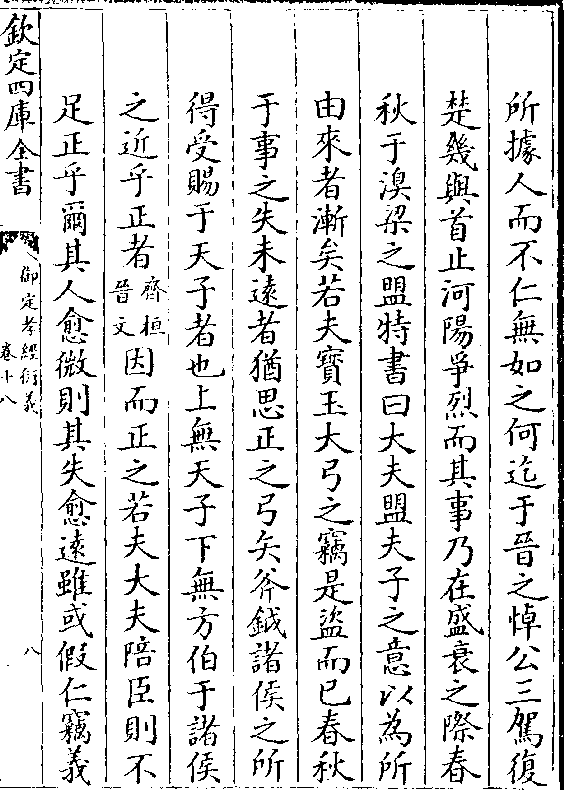 所據人而不仁無如之何迄于晉之悼公三駕復
楚幾與首止河陽爭烈而其事乃在盛衰之際春
秋于溴梁之盟特書曰大夫盟夫子之意以為所
由來者漸矣若夫寳玉大弓之竊是盜而已春秋
于事之失未遠者猶思正之弓矢斧鉞諸侯之所
得受賜于天子者也上無天子下無方伯于諸侯
之近乎正者齊桓晉文因而正之若夫大夫陪臣則不
足正乎爾其人愈微則其失愈遠雖或假仁竊義
欽定四庫全書
御定孝經衍義
卷十八
八